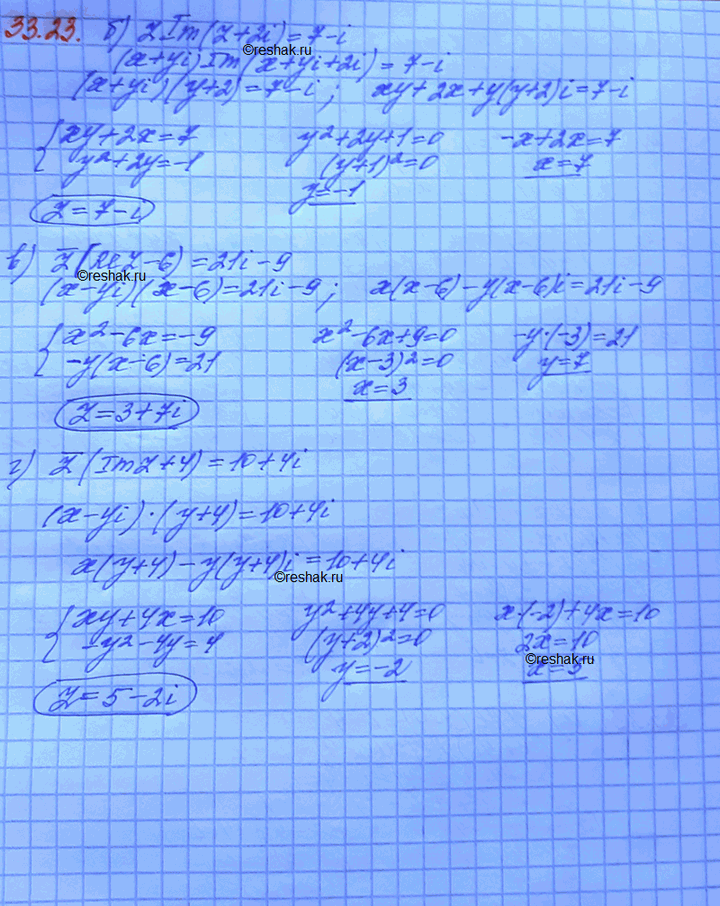 33.23. б) Z Im(Z+2i)=7-i
(x+yi) Im(x+yi+2i)=7-i
(x+yi)(y+2)=7-i; xy+2x+y(y+2)i=7-i
{ xy+2x=7 y²+2y+1=0 -x+2x=7
y²+2y=-1 (y+1)²=0 x=7
y=-1
Z=7-i
в) Z̅(ReZ-6)=21i-9
(x-yi)(x-6)=21i-9; x(x-6)-y(x-6)i=21i-9
{ x²-6x=-9 x²-6x+9=0 -y·(-3)=21
-y(x-6)=21 (x-3)²=0 y=7
x=3
Z=3+7i
г) Z̅(ImZ+4)=10+4i
(x-yi)·(y+4)=10+4i
x(y+4)-y(y+4)i=10+4i
{ xy+4x=10 y²+4y+4=0 x·(-2)+4x=10
-y²-4y=4 (y+2)²=0 2x=10
y=-2 x=5
Z=5-2i
©reshak.ru
©reshak.ru
©reshak.ru
©reshak.ru